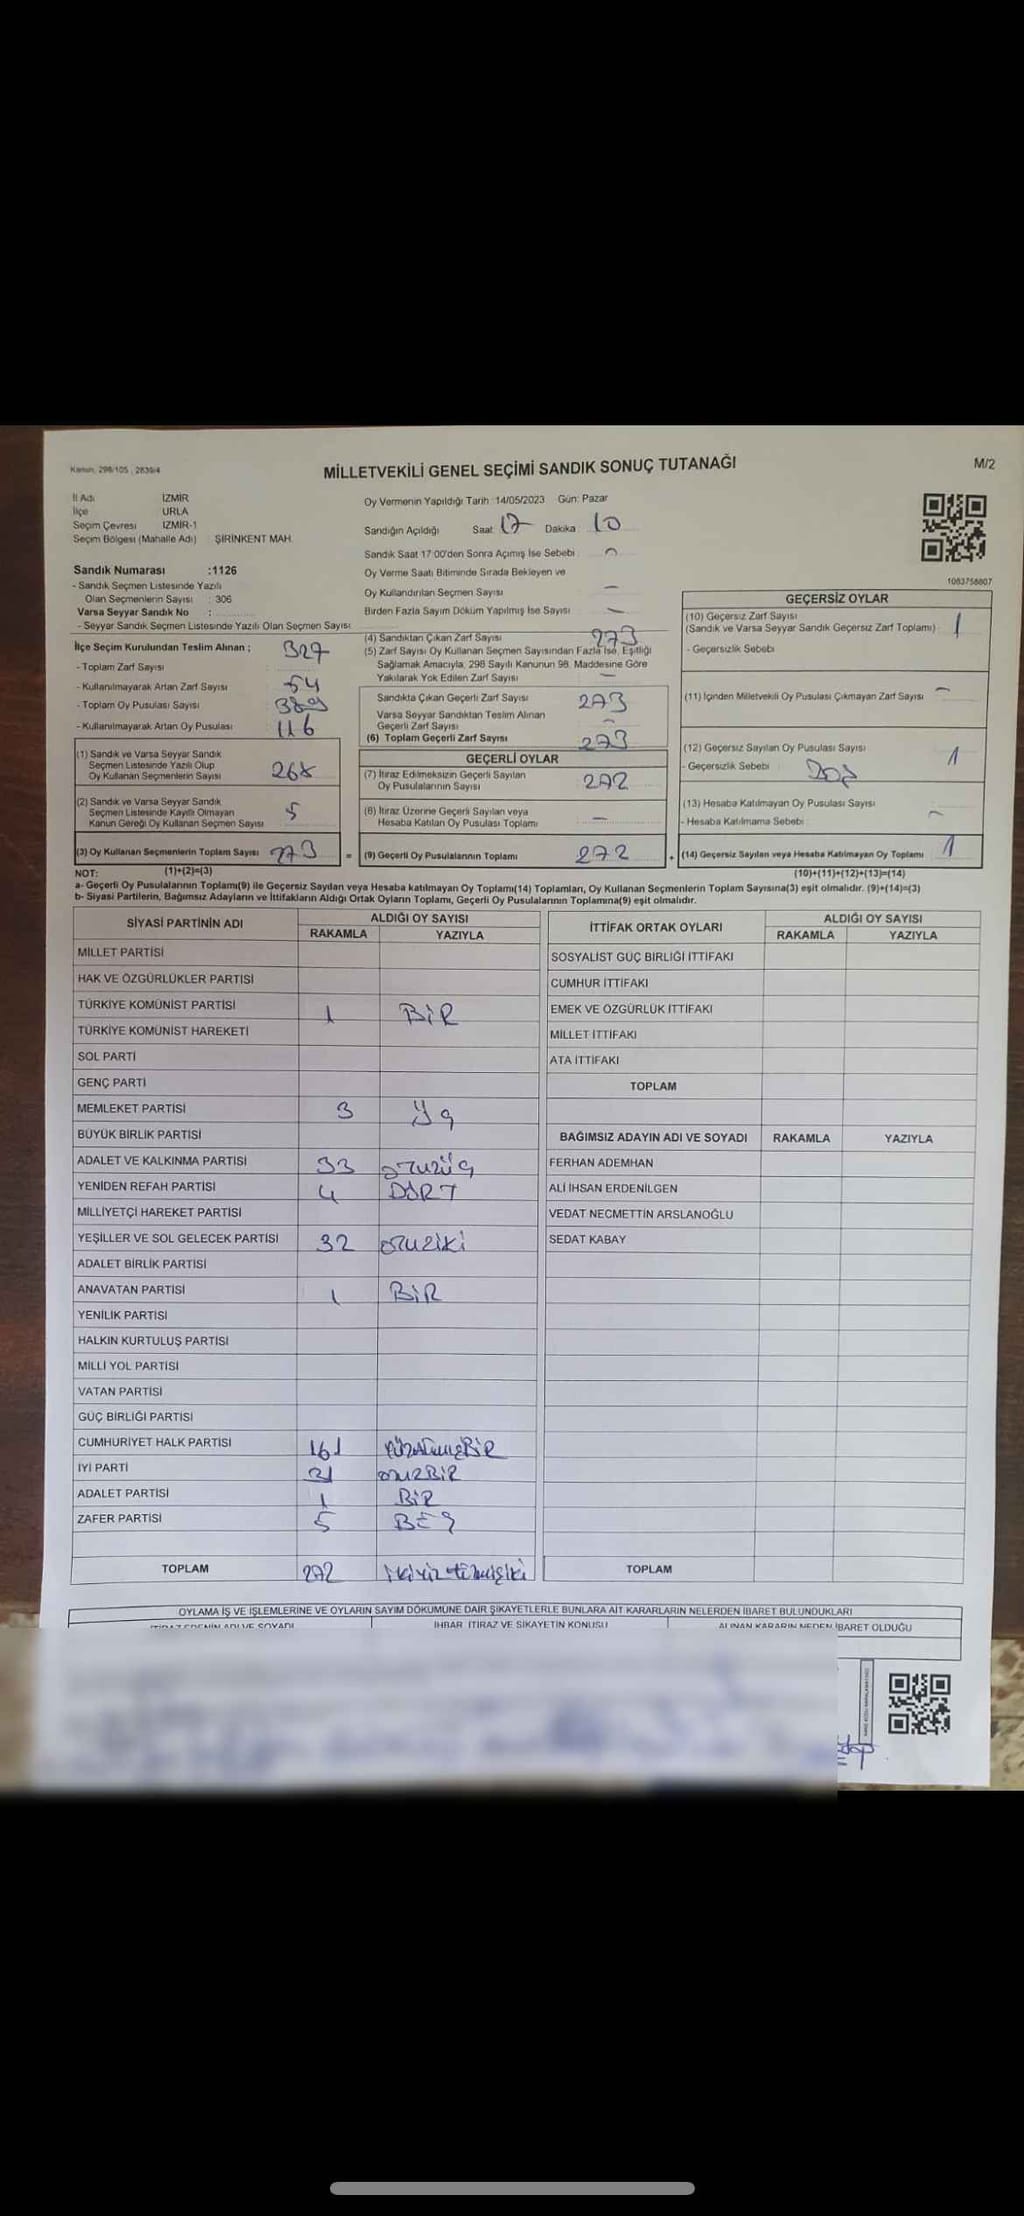 Kanun, 298/105 , 2839/4
MİLLETVEKİLİ GENEL SEÇİMİ SANDIK SONUÇ TUTANAĞI
M/2
İl Adı İZMİR
İlçe URLA
Seçim Çevresi İZMİR-1
Seçim Bölgesi (Mahalle Adı) ŞİRİNKENT MAH.
Oy Vermenin Yapıldığı Tarih :14/05/2023 Gün: Pazar
Sandığın Açıldığı Saat: 17 Dakika : 10
Sandık Saat 17:00'den Sonra Açımış İse Sebebi :
Oy Verme Saati Bitiminde Sırada Bekleyen ve
Oy Kullandırılan Seçmen Sayısı
Birden Fazla Sayım Döküm Yapılmış İse Sayısı
1083758807
Sandık Numarası :1126
- Sandık Seçmen Listesinde Yazılı
Olan Seçmenlerin Sayısı : 306
Varsa Seyyar Sandık No :
- Seyyar Sandık Seçmen Listesinde Yazılı Olan Seçmen Sayısı
İlçe Seçim Kurulundan Teslim Alınan ;
- Toplam Zarf Sayısı 327
- Kullanılmayarak Artan Zarf Sayısı 54
- Toplam Oy Pusulası Sayısı
- Kullanılmayarak Artan Oy Pusulası 116
(1) Sandık ve Varsa Seyyar Sandık
Seçmen Listesinde Yazılı Olup
Oy Kullanan Seçmenlerin Sayısı 268
(2) Sandık ve Varsa Seyyar Sandık
Seçmen Listesinde Kayıtlı Olmayan
Kanun Gereği Oy Kullanan Seçmen Sayısı 5
(3) Oy Kullanan Seçmenlerin Toplam Sayısı 273
(4) Sandıktan Çıkan Zarf Sayısı 273
(5) Zarf Sayısı Oy Kullanan Seçmen Sayısından Fazla İse, Eşitliği
Sağlamak Amacıyla, 298 Sayılı Kanunun 98. Maddesine Göre
Yakılarak Yok Edilen Zarf Sayısı
Sandıkta Çıkan Geçerli Zarf Sayısı 273
Varsa Seyyar Sandıktan Teslim Alınan
Geçerli Zarf Sayısı
(6) Toplam Geçerli Zarf Sayısı 273
GEÇERLİ OYLAR
(7) İtiraz Edilmeksizin Geçerli Sayılan
Oy Pusulalarının Sayısı 272
(8) İtiraz Üzerine Geçerli Sayılan veya
Hesaba Katılan Oy Pusulası Toplamı
= (9) Geçerli Oy Pusulalarının Toplamı 272
GEÇERSİZ OYLAR
(10) Geçersiz Zarf Sayısı
(Sandık ve Varsa Seyyar Sandık Geçersiz Zarf Toplamı) : 1
- Geçersizlik Sebebi
(11) İçinden Milletvekili Oy Pusulası Çıkmayan Zarf Sayısı
(12) Geçersiz Sayılan Oy Pusulası Sayısı 1
- Geçersizlik Sebebi
(13) Hesaba Katılmayan Oy Pusulası Sayısı
- Hesaba Katılmama Sebebi
+ (14) Geçersiz Sayılan veya Hesaba Katılmayan Oy Toplamı 1
NOT: (1)+(2)=(3)
(10)+(11)+(12)+(13)=(14)
a- Geçerli Oy Pusulalarının Toplamı(9) ile Geçersiz Sayılan veya Hesaba katılmayan Oy Toplamı(14) Toplamları, Oy Kullanan Seçmenlerin Toplam Sayısına(3) eşit olmalıdır. (9)+(14)=(3)
b- Siyasi Partilerin, Bağımsız Adayların ve İttifakların Aldığı Ortak Oyların Toplamı, Geçerli Oy Pusulalarının Toplamına(9) eşit olmalıdır.
SİYASİ PARTİNİN ADI ALDIĞI OY SAYISI
RAKAMLA YAZIYLA
MİLLET PARTİSİ
HAK VE ÖZGÜRLÜKLER PARTİSİ
TÜRKİYE KOMÜNİST PARTİSİ 1 BİR
TÜRKİYE KOMÜNİST HAREKETİ
SOL PARTİ
GENÇ PARTİ
MEMLEKET PARTİSİ 3 Üç
BÜYÜK BİRLİK PARTİSİ
ADALET VE KALKINMA PARTİSİ 33 OTUZÜÇ
YENİDEN REFAH PARTİSİ 4 DÖRT
MİLLİYETÇİ HAREKET PARTİSİ
YEŞİLLER VE SOL GELECEK PARTİSİ 32 OTUZİKİ
ADALET BİRLİK PARTİSİ
ANAVATAN PARTİSİ 1 BİR
YENİLİK PARTİSİ
HALKIN KURTULUŞ PARTİSİ
MİLLİ YOL PARTİSİ
VATAN PARTİSİ
GÜÇ BİRLİĞİ PARTİSİ
CUMHURİYET HALK PARTİSİ 161 YÜZALTMIŞBİR
İYİ PARTİ 31 OTUZBİR
ADALET PARTİSİ 1 BİR
ZAFER PARTİSİ 5 BEŞ
TOPLAM 272 ikiyüzyetmişiki
İTTİFAK ORTAK OYLARI ALDIĞI OY SAYISI
RAKAMLA YAZIYLA
SOSYALİST GÜÇ BİRLİĞİ İTTİFAKI
CUMHUR İTTİFAKI
EMEK VE ÖZGÜRLÜK İTTİFAKI
MİLLET İTTİFAKI
ATA İTTİFAKI
TOPLAM
BAĞIMSIZ ADAYIN ADI VE SOYADI RAKAMLA YAZIYLA
FERHAN ADEMHAN
ALİ İHSAN ERDENİLGEN
VEDAT NECMETTİN ARSLANOĞLU
SEDAT KABAY
TOPLAM
OYLAMA İŞ VE İŞLEMLERİNE VE OYLARIN SAYIM DÖKÜMÜNE DAİR ŞİKAYETLERLE BUNLARA AİT KARARLARIN NELERDEN İBARET BULUNDUKLARI
İTİRAZ EDENİN ADI VE SOYADI İHBAR, İTİRAZ VE ŞİKAYETİN KONUSU ALINAN KARARIN NEDEN İBARET OLDUĞU